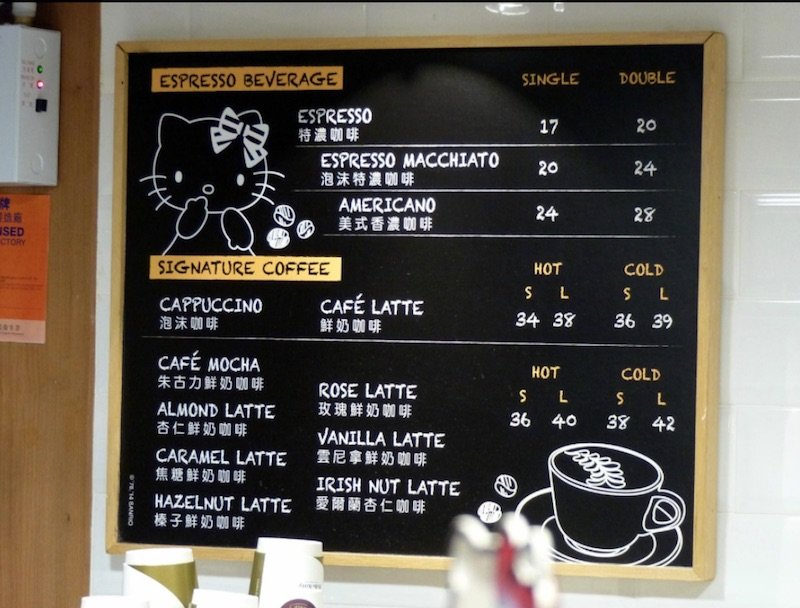 ESPRESSO BEVERAGE SINGLE DOUBLE
ESPRESSO 17 20
特濃咖啡
ESPRESSO MACCHIATO 20 24
泡沫特濃咖啡
AMERICANO 24 28
美式香濃咖啡
SIGNATURE COFFEE HOT COLD
S L S L
CAPPUCCINO CAFÉ LATTE 34 38 36 39
泡沫咖啡 鮮奶咖啡
CAFÉ MOCHA HOT COLD
朱古力鮮奶咖啡
ROSE LATTE S L S L
玫瑰鮮奶咖啡 36 40 38 42
ALMOND LATTE
杏仁鮮奶咖啡
VANILLA LATTE
雲尼拿鮮奶咖啡
CARAMEL LATTE
焦糖鮮奶咖啡
IRISH NUT LATTE
愛爾蘭杏仁咖啡
HAZELNUT LATTE
榛子鮮奶咖啡
©'76,'14 SANRIO
牌
NSED